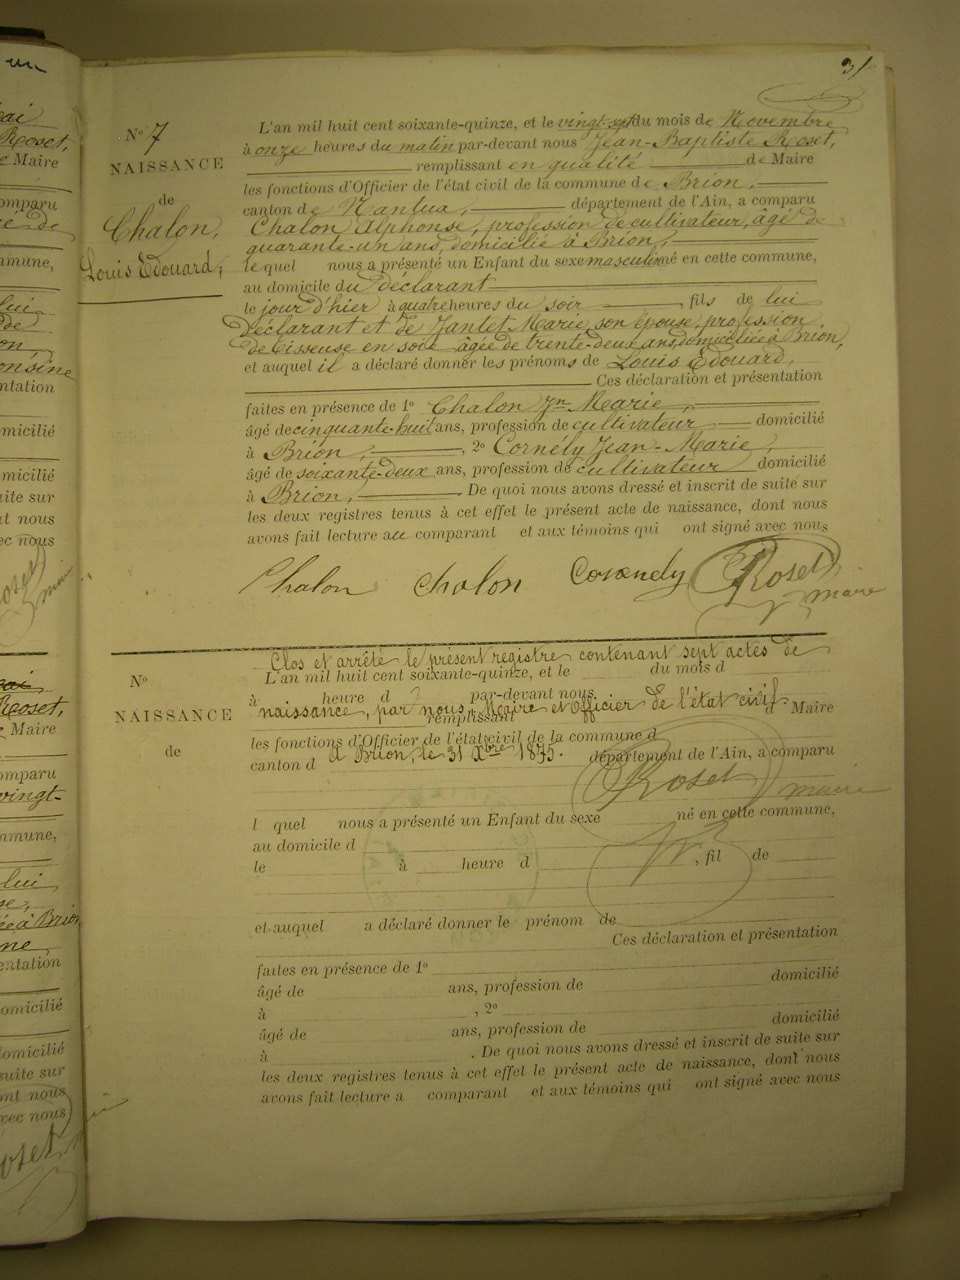 31
N° 7
NAISSANCE
de
Chalon,
Louis Edouard,
L'an mil huit cent soixante-quinze, et le vingt-sept du mois de Novembre
à onze heures du matin par-devant nous Jean-Baptiste Roset,
remplissant en qualité de Maire
les fonctions d'Officier de l'état civil de la commune de Brion,
canton de Nantua, département de l'Ain, a comparu
Chalon Alphonse, profession de cultivateur, âgé de
quarante-un ans, domicilié à Brion,
le quel nous a présenté un Enfant du sexe masculin né en cette commune,
au domicile du déclarant
le jour d'hier à quatre heures du soir, fils de lui
Déclarant et de Jantet Marie, son épouse, profession
de tisseuse en soie âgée de trente-deux ans, domiciliée à Brion,
et auquel il a déclaré donner les prénoms de Louis Edouard,
Ces déclaration et présentation
faites en présence de 1° Chalon Jn Marie,
âgé de cinquante-huit ans, profession de cultivateur, domicilié
à Brion, , 2° Cornély Jean-Marie,
âgé de soixante-deux ans, profession de cultivateur domicilié
à Brion, . De quoi nous avons dressé et inscrit de suite sur
les deux registres tenus à cet effet le présent acte de naissance, dont nous
avons fait lecture au comparant et aux témoins qui ont signé avec nous
Chalon Chalon Cornely Roset
maire
Clos et arrêté le présent registre contenant sept actes de
N° L'an mil huit cent soixante-quinze, et le du mois d
à heure d par-devant nous
naissance, par nous, Maire et Officier de l'état civil
NAISSANCE remplissant d Maire
de les fonctions d'Officier de l'état civil de la commune d
à Brion, le 31 Xbre 1875.
canton d département de l'Ain, a comparu
Roset maire
l quel nous a présenté un Enfant du sexe né en cette commune,
au domicile d
le à heure d , fil de
et auquel a déclaré donner le prénom de
Ces déclaration et présentation
faites en présence de 1°
âgé de ans, profession de domicilié
à , 2°
âgé de ans, profession de domicilié
à . De quoi nous avons dressé et inscrit de suite sur
les deux registres tenus à cet effet le présent acte de naissance, dont nous
avons fait lecture a comparant et aux témoins qui ont signé avec nous